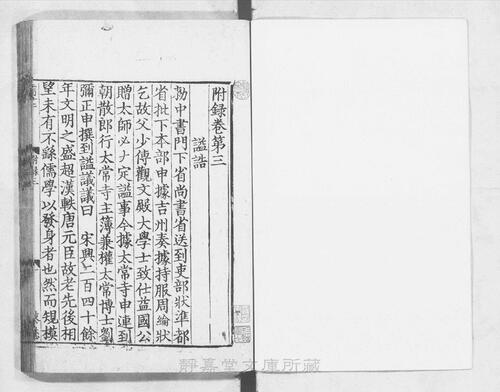 附録卷第三
謚誥
勑中書門下省尚書省送到吏部狀準都
省批下本部申據吉州奏據持服周綸狀
乞故父少傅觀文殿大學士致仕益國公
贈太師必大定謚事今據太常寺申連到
朝散郎行太常寺主簿兼權太常博士劉
彌正申撰到謚議議曰 宋興二百四十餘
年文明之盛超漢軼唐元臣故老先後相
望未有不繇儒學以發身者也然而規模
靜嘉堂文庫所藏